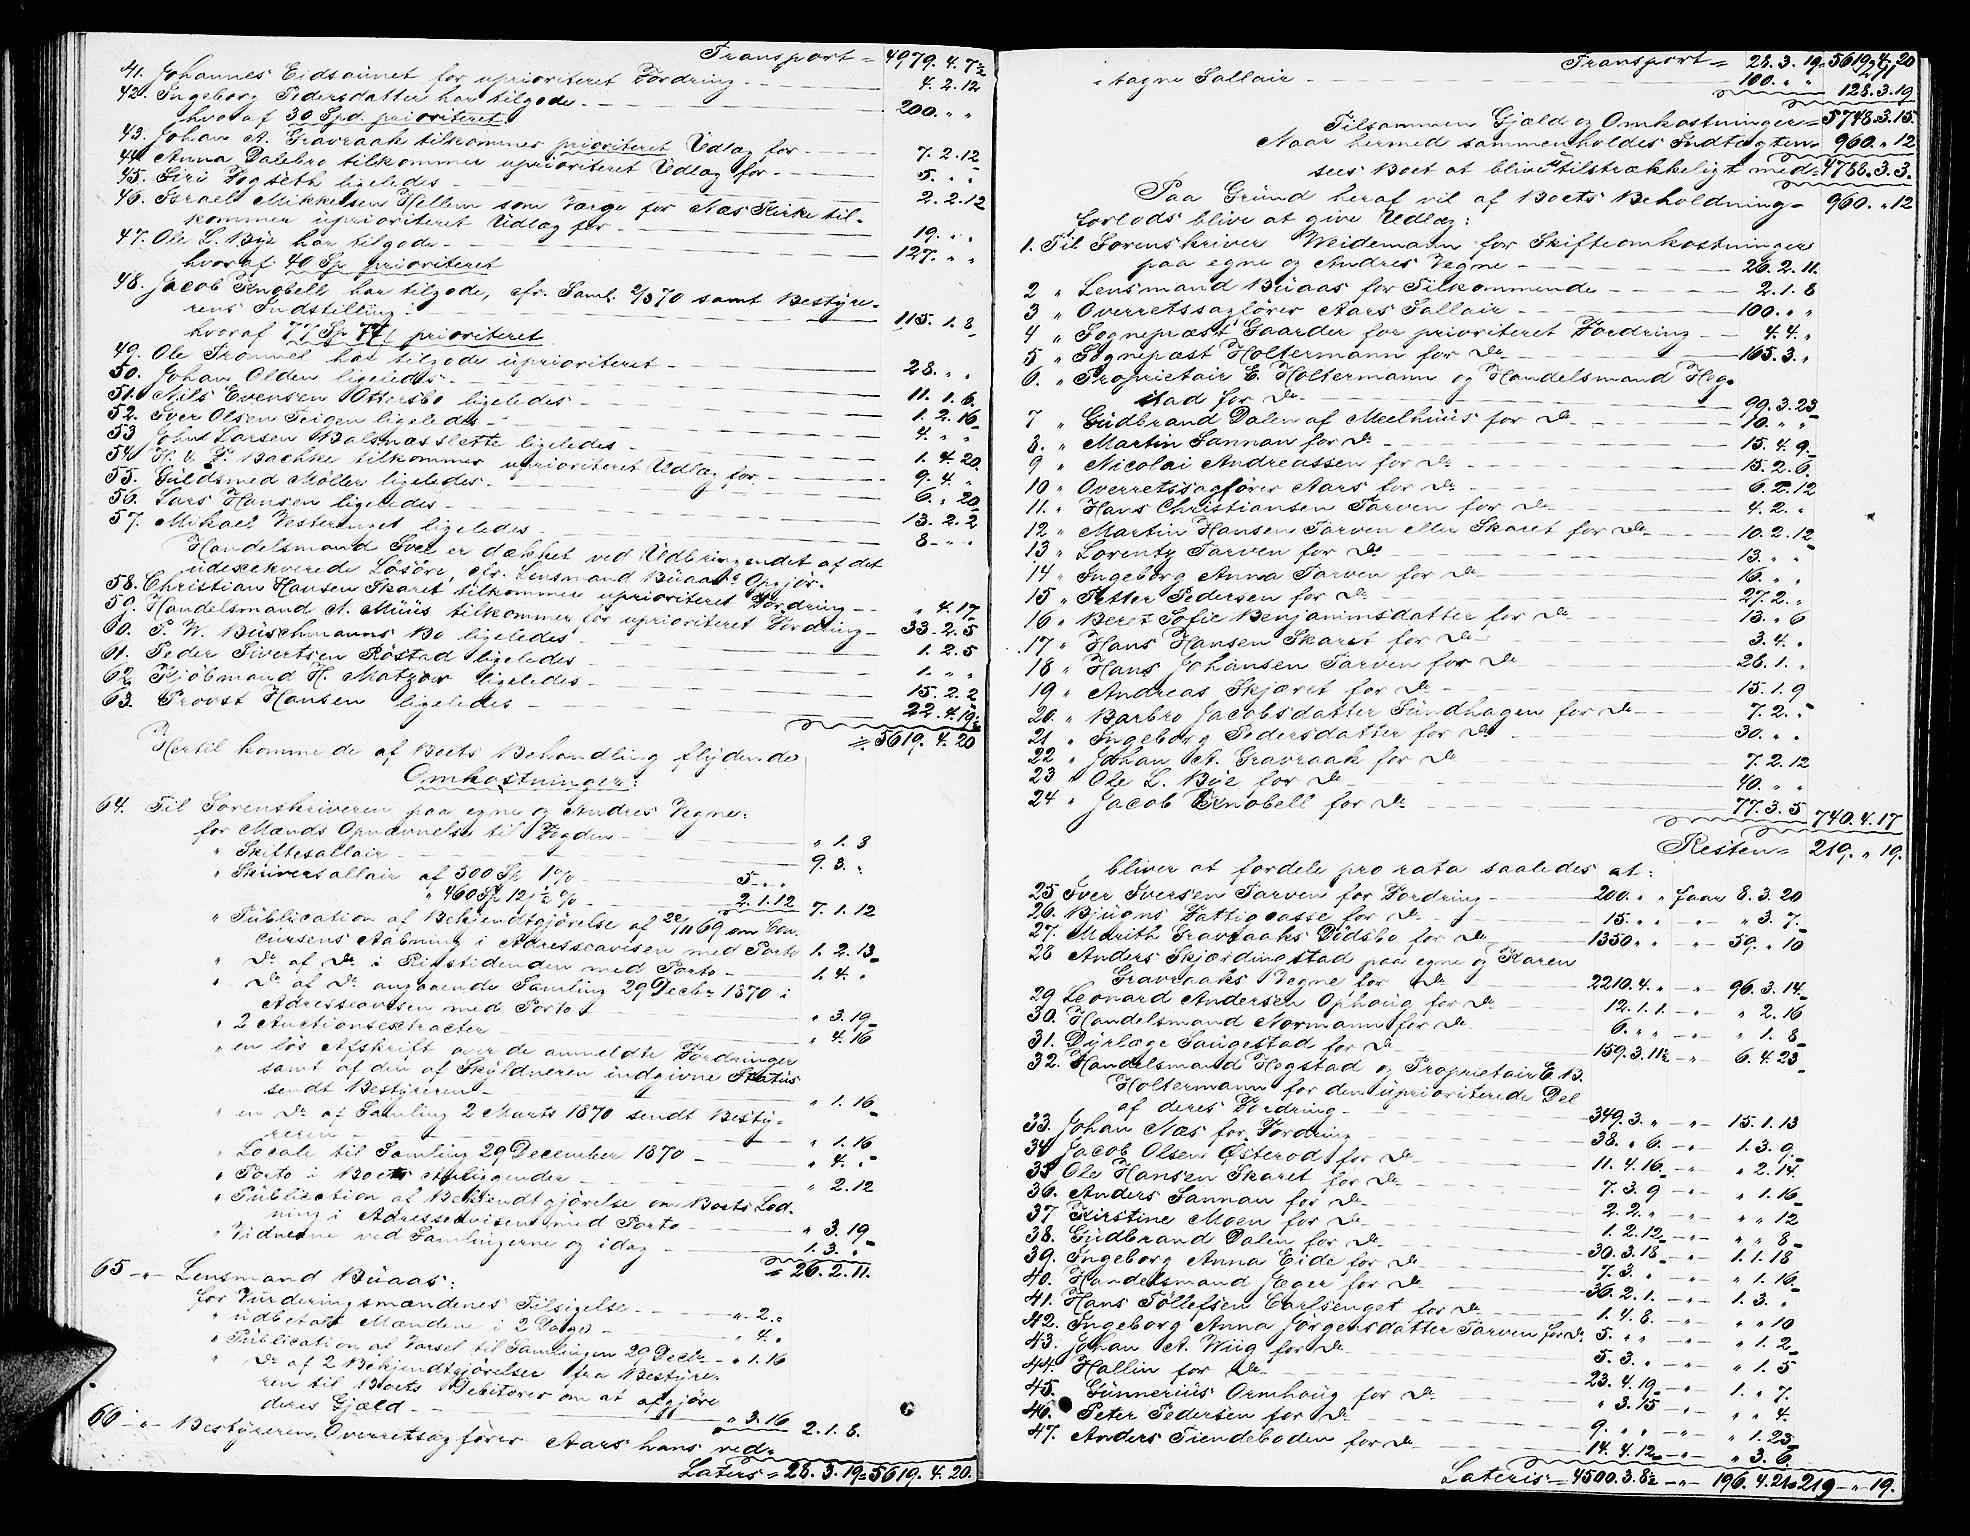 Transport = 4979. 4. 7½
41. Johannes Eidsaunet for uprioriteret Fordring — 4. 2. 12
42. Ingeborg Pedersdatter har tilgode — 200. " "
hvoraf 30 Spd. prioriteret.
43. Johan A. Gravraak tilkommer prioriteret Udlæg for — 7. 2. 12
44. Anna Dalebro tilkommer uprioriteret Udlæg for — 5. " "
45. Siri Hogseth ligeledes — 2. 2. 12
46. Israel Mikkelsen Hellem som Værge for Næs Kirke til-
kommer uprioriteret Udlæg for — 19. " "
47. Ole L. Bye har tilgode — 127. " "
hvoraf 40 Sp prioriteret
48. Jacob Knobell har tilgode, cfr. Saml. 2/3 70 samt Bestyre-
rens Indstilling — 115. 1. 8
hvoraf 77 Sp prioriteret
49. Ole Trommel har tilgode uprioriteret — 28. " "
50. Johan Olden ligeledes — 11. 1. 6.
51. Nils Evensen Ottersbo ligeledes — 1. 2. 16
52. Iver Olsen Teigen ligeledes — 4. " "
53 John Larsen Balsnæsslette ligeledes — 1. 4. 20.
54. H. & F. Bachke tilkommer uprioriteret Udlæg for — 9. 4. "
55. Guldsmed Møller ligeledes — 6. " 20
56. Lars Hansen ligeledes — 13. 2. 2
57. Mikael Vesterenget ligeledes — 8 " "
Handelsmand Svee er dækket ved Udbringendet af det
udexekverede Løsøre, cfr. Lensmand Buaas's Opgjør.
58. Christian Hansen Skaret tilkommer uprioriteret Fordring — " 4. 17
59. Handelsmand A. Muus tilkommer for uprioriteret Fordring — 33. 2. 5
60. P. W. Buschmanns Bo ligeledes — 1. 2. 5
61. Peder Sivertsen Røstad ligeledes — 1. " "
62. Kjøbmand H. Matzow ligeledes — 15. 2. 2
63. Provst Hansen ligeledes — 22. 4. 19½
= 5619. 4. 20
Hertil komme de af Boets Behandling flydende
Omkostninger:
64. Til Sorenskriveren paa egne og Andres Vegne:
for Mænds Opnævnelse til Fogden — " 1. 3
" Skiftesallair — 9. 3. "
" Skriversallair af 500 Sp 1% — 5 " "
" 460 Sp 12½% — 2. 1. 12 7. 1. 12
" Publication af Bekjendtgjørelse af 22/11 69 om Con-
cursens Aabning i Adresseavisen med Porto 1. 2. 13
" Do af Do i Rigstidenden med Porto — 1. 4. "
" Do af Do angaaende Samling 29 Decbr 1870 i
Adresseavisen med Porto — " 3. 19
" 2 Auctionsextracter — " 4. 16
" en løs Afskrift over de anmeldte Fordringer
samt af den af Skyldneren indgivne Status
sendt Bestyreren — " 1. 16
" en Do af Samling 2 Marts 1870 sendt Besty-
reren — " 1. 16
" Locale til Samling 29 December 1870 — " 4. "
" Porto i Boets Anliggender — " 2. 12
" Publication af Bekjendtgjørelse om Boets Lod-
ning i Adresseavisen med Porto — " 3. 19
" Vidnerne ved Samlingerne og idag — 1. 3. "
= 26. 2. 11.
65 — " — Lensmand Buaas:
for Vurderingsmændenes Tilsigelse — " 2. "
" udbetalt Mændene i 2 Dage — " 4. "
" Publication af Varsel til Samlingen 29 Decbr — " 1. 16
" Do af 2 Bekjendtgjørelser fra Bestyre-
ren til Boets Debitorer om at afgjøre
deres Gjæld — " 3. 16 2. 1. 8.
66 — " — Bestyreren, Overretsagfører Aars hans ved-
Lateris = 28. 3. 19 = 5619. 4. 20.
Transport = 28. 3. 19 = 5619. 4. 20
tagne Sallair — 100. " "
128. 3. 19
Tilsammen Gjæld og Omkostninger = 5748. 3. 15.
Naar hermed sammenholdes Indtægten = 960. " 12
sees Boet at blive utilstrækkeligt med = 4788. 3. 3.
Paa Grund heraf vil af Boets Beholdning = 960. " 12
forlods blive at give Udlæg:
1. Til Sorenskriver Weidemann for Skifteomkostninger
paa egne og Andres Vegne — 26. 2. 11.
2 " Lensmand Buaas for Tilkommende — 2. 1. 8
3 " Overretssagfører Aars Sallair — 100. " "
4 " Sognepræst Gaarder for prioriteret Fordring — 4. 4. "
5 " Sognepræst Holtermann for Do — 165. 3. "
6. " Proprietair E. Holtermann og Handelsmand Hog-
stad for Do — 99. 3. 23
7 " Gudbrand Dalen af Meelhuus for Do — 10. " "
8. " Martin Sannan for Do — 15. 4. 9
9 " Nicolai Andreassen for Do — 15. 2. 6
10 " Overretssagfører Aars for Do — 6. 2. 12
11. " Hans Christiansen Tarven for Do — 4. 2. "
12 " Martin Hansen Tarven eller Skaret for Do — 10. 2. 12
13 " Lorentz Tarven for Do — 13. " "
14 " Ingeborg Anna Tarven for Do — 16. " "
15 " Petter Pedersen for Do — 27. 2. "
16 " Beret Sofie Benjaminsdatter for Do — 13. " 6
17 " Hans Hansen Skaret for Do — 3. 4. "
18 " Hans Johansen Tarven for Do — 26. 1. "
19 " Andreas Skjæret for Do — 15. 1. 9
20. " Barbro Jacobsdatter Sundhagen for Do — 7. 2. "
21 " Ingeborg Pedersdatter for Do — 30. " "
22 " Johan A. Gravraak for Do — 7. 2. 12
23 " Ole L. Bye for Do — 40. " "
24 " Jacob Knobell for Do — 77. 3. 5 740. 4. 17
Resten = 219. " 19.
bliver at fordele pro rata saaledes at:
25 Iver Iversen Tarven for Fordring — 200. " " faar 8. 3. 20
26. Bjugns Fattigcasse for Do — 15. " " — " — " 3. 7
27. Marith Gravraaks Dødsbo for Do — 1350 " " — " — 59. " 10
28 Anders Skjærdingstad paa egne og Karen
Gravraaks Vegne for Do — 2210. 4. " — " — 96. 3. 14
29 Leonard Andersen Ophaug for Do — 12. 1. 1. — " — " 2. 16
30. Handelsmand Normann for Do — 6. " " — " — " 1. 8
31. Dyrlæge Saugestad for Do — 159. 3. 11½ — " — 6. 4. 23
32. Handelsmand Hogstad og Proprietair E. B.
Holtermann for den uprioriterede Del
af deres Fordring — 349. 3. " — " — 15. 1. 13
33. Johan Næs for Fordring — 38. " 6. — " — 1. 3. 9
34 Jacob Olsen Østerod for Do — 11. 4. 16 — " — " 2. 14
35 Ole Hansen Skaret for Do — 7. 3. 9 — " — " 1. 16
36. Anders Sannan for Do — 2. 2. " — " — " " 12
37 Kirstine Moen for Do — 1. 2. 12 — " — " " 8
38. Gudbrand Dalen for Do — 30. 3. 18 — " — 1. 1. 18
39. Ingeborg Anna Eide for Do — 7. 3. " — " — " 1. 16
40. Handelsmand Jæger for Do — 36. 2. 1. — " — 1. 3. "
41. Hans Tøllefsen Carlsenget for Do — 1. 4. 8. — " — " " 10
42. Ingeborg Anna Jørgensdatter Tarven for Do 5. " " — " — " 1. 2
43. Johan A. Wiig for Do — 5. 3. " — " — " 1. 5
44. Hallin for Do — 23. 4. 19 — " — 1. " 7.
45. Gunnerius Ormhaug for Do — " 3. 15 — " — " " 4.
46. Peter Pedersen for Do — 9. " " — " — " 1. 23
47. Anders Tiendeboden for Do — 14. 4. 12 — " — " 3. 6.
Lateris = 4500. 3. 8½ — " — 196. 4. 21 = 219 — " 19.